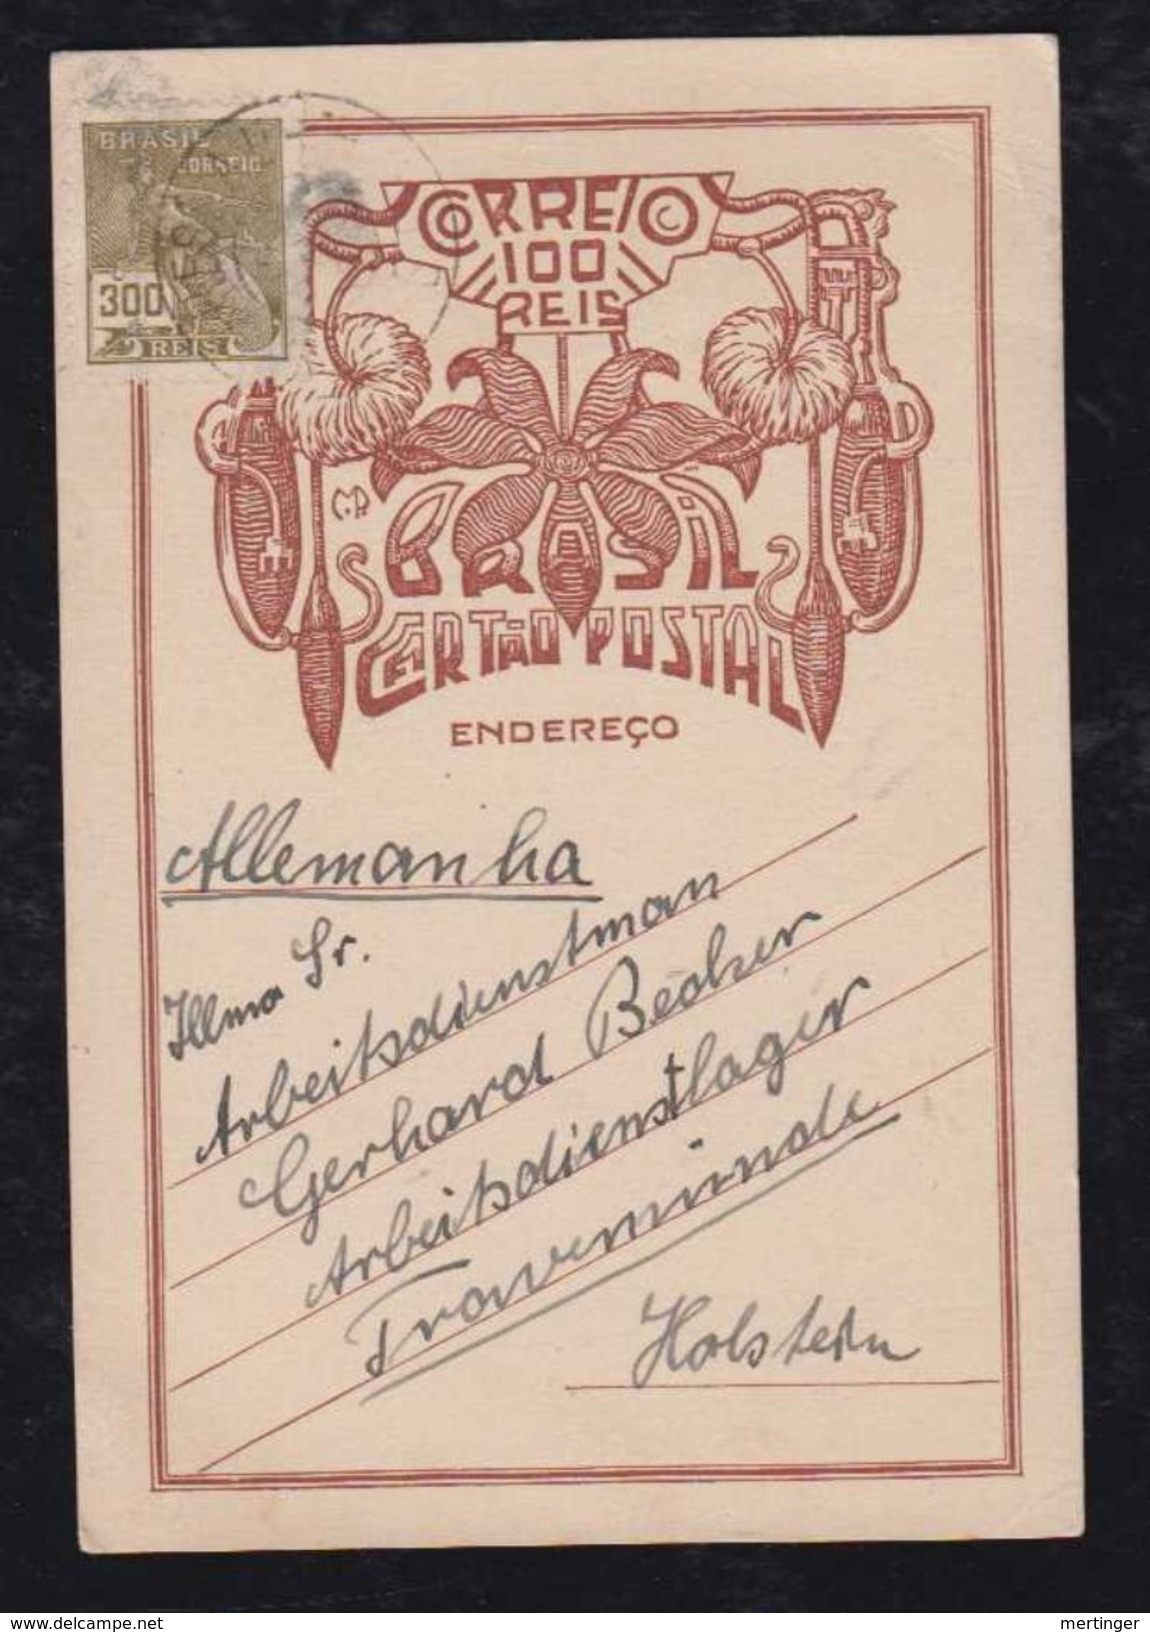 BRASIL
CORREIO
300
REIS
CORREIO
100
REIS
BRASIL
CARTÃO POSTAL
ENDEREÇO
Allemanha
Illmo Sr.
Arbeitsdienstman
Gerhard Becker
Arbeitsdienstlager
Travemünde
Holstein
https://www.delcampe.net
mertinger